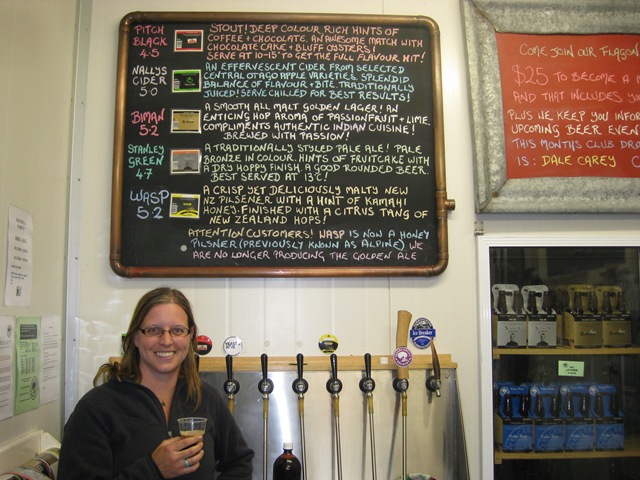 PITCH BLACK 4·5
STOUT! DEEP COLOUR, RICH HINTS OF
COFFEE + CHOCOLATE. AN AWESOME MATCH WITH
CHOCOLATE CAKE + BLUFF OYSTERS!
SERVE AT 10-15° TO GET THE FULL FLAVOUR HIT!
NALLYS CIDER 5·0
AN EFFERVESCENT CIDER FROM SELECTED
CENTRAL OTAGO APPLE VARIETIES. SPLENDID
BALANCE OF FLAVOUR + BITE. TRADITIONALLY
JUICED! SERVE CHILLED FOR BEST RESULTS!
BIMAN 5·2
A SMOOTH ALL MALT GOLDEN LAGER! AN
ENTICING HOP AROMA OF PASSIONFRUIT + LIME.
COMPLIMENTS AUTHENTIC INDIAN CUISINE!
BREWED WITH PASSION!
STANLEY GREEN 4·7
A TRADITIONALLY STYLED PALE ALE! PALE
BRONZE IN COLOUR. HINTS OF FRUITCAKE WITH
A DRY HOPPY FINISH. A GOOD ROUNDED BEER.
BEST SERVED AT 13°C!
WASP 5.2
A CRISP YET DELICIOUSLY MALTY NEW
NZ PILSENER WITH A HINT OF KAMAHI
HONEY. FINISHED WITH A CITRUS TANG OF
NEW ZEALAND HOPS!
ATTENTION CUSTOMERS! WASP IS NOW A HONEY
PILSNER (PREVIOUSLY KNOWN AS ALPINE) WE
ARE NO LONGER PRODUCING THE GOLDEN ALE
COME JOIN OUR FLAGON
$25 TO BECOME A
AND THAT INCLUDES YO
PLUS WE KEEP YOU INFOR
UPCOMING BEER EVEN
THIS MONTHS CLUB DRA
IS: DALE CAREY
Ice Breaker